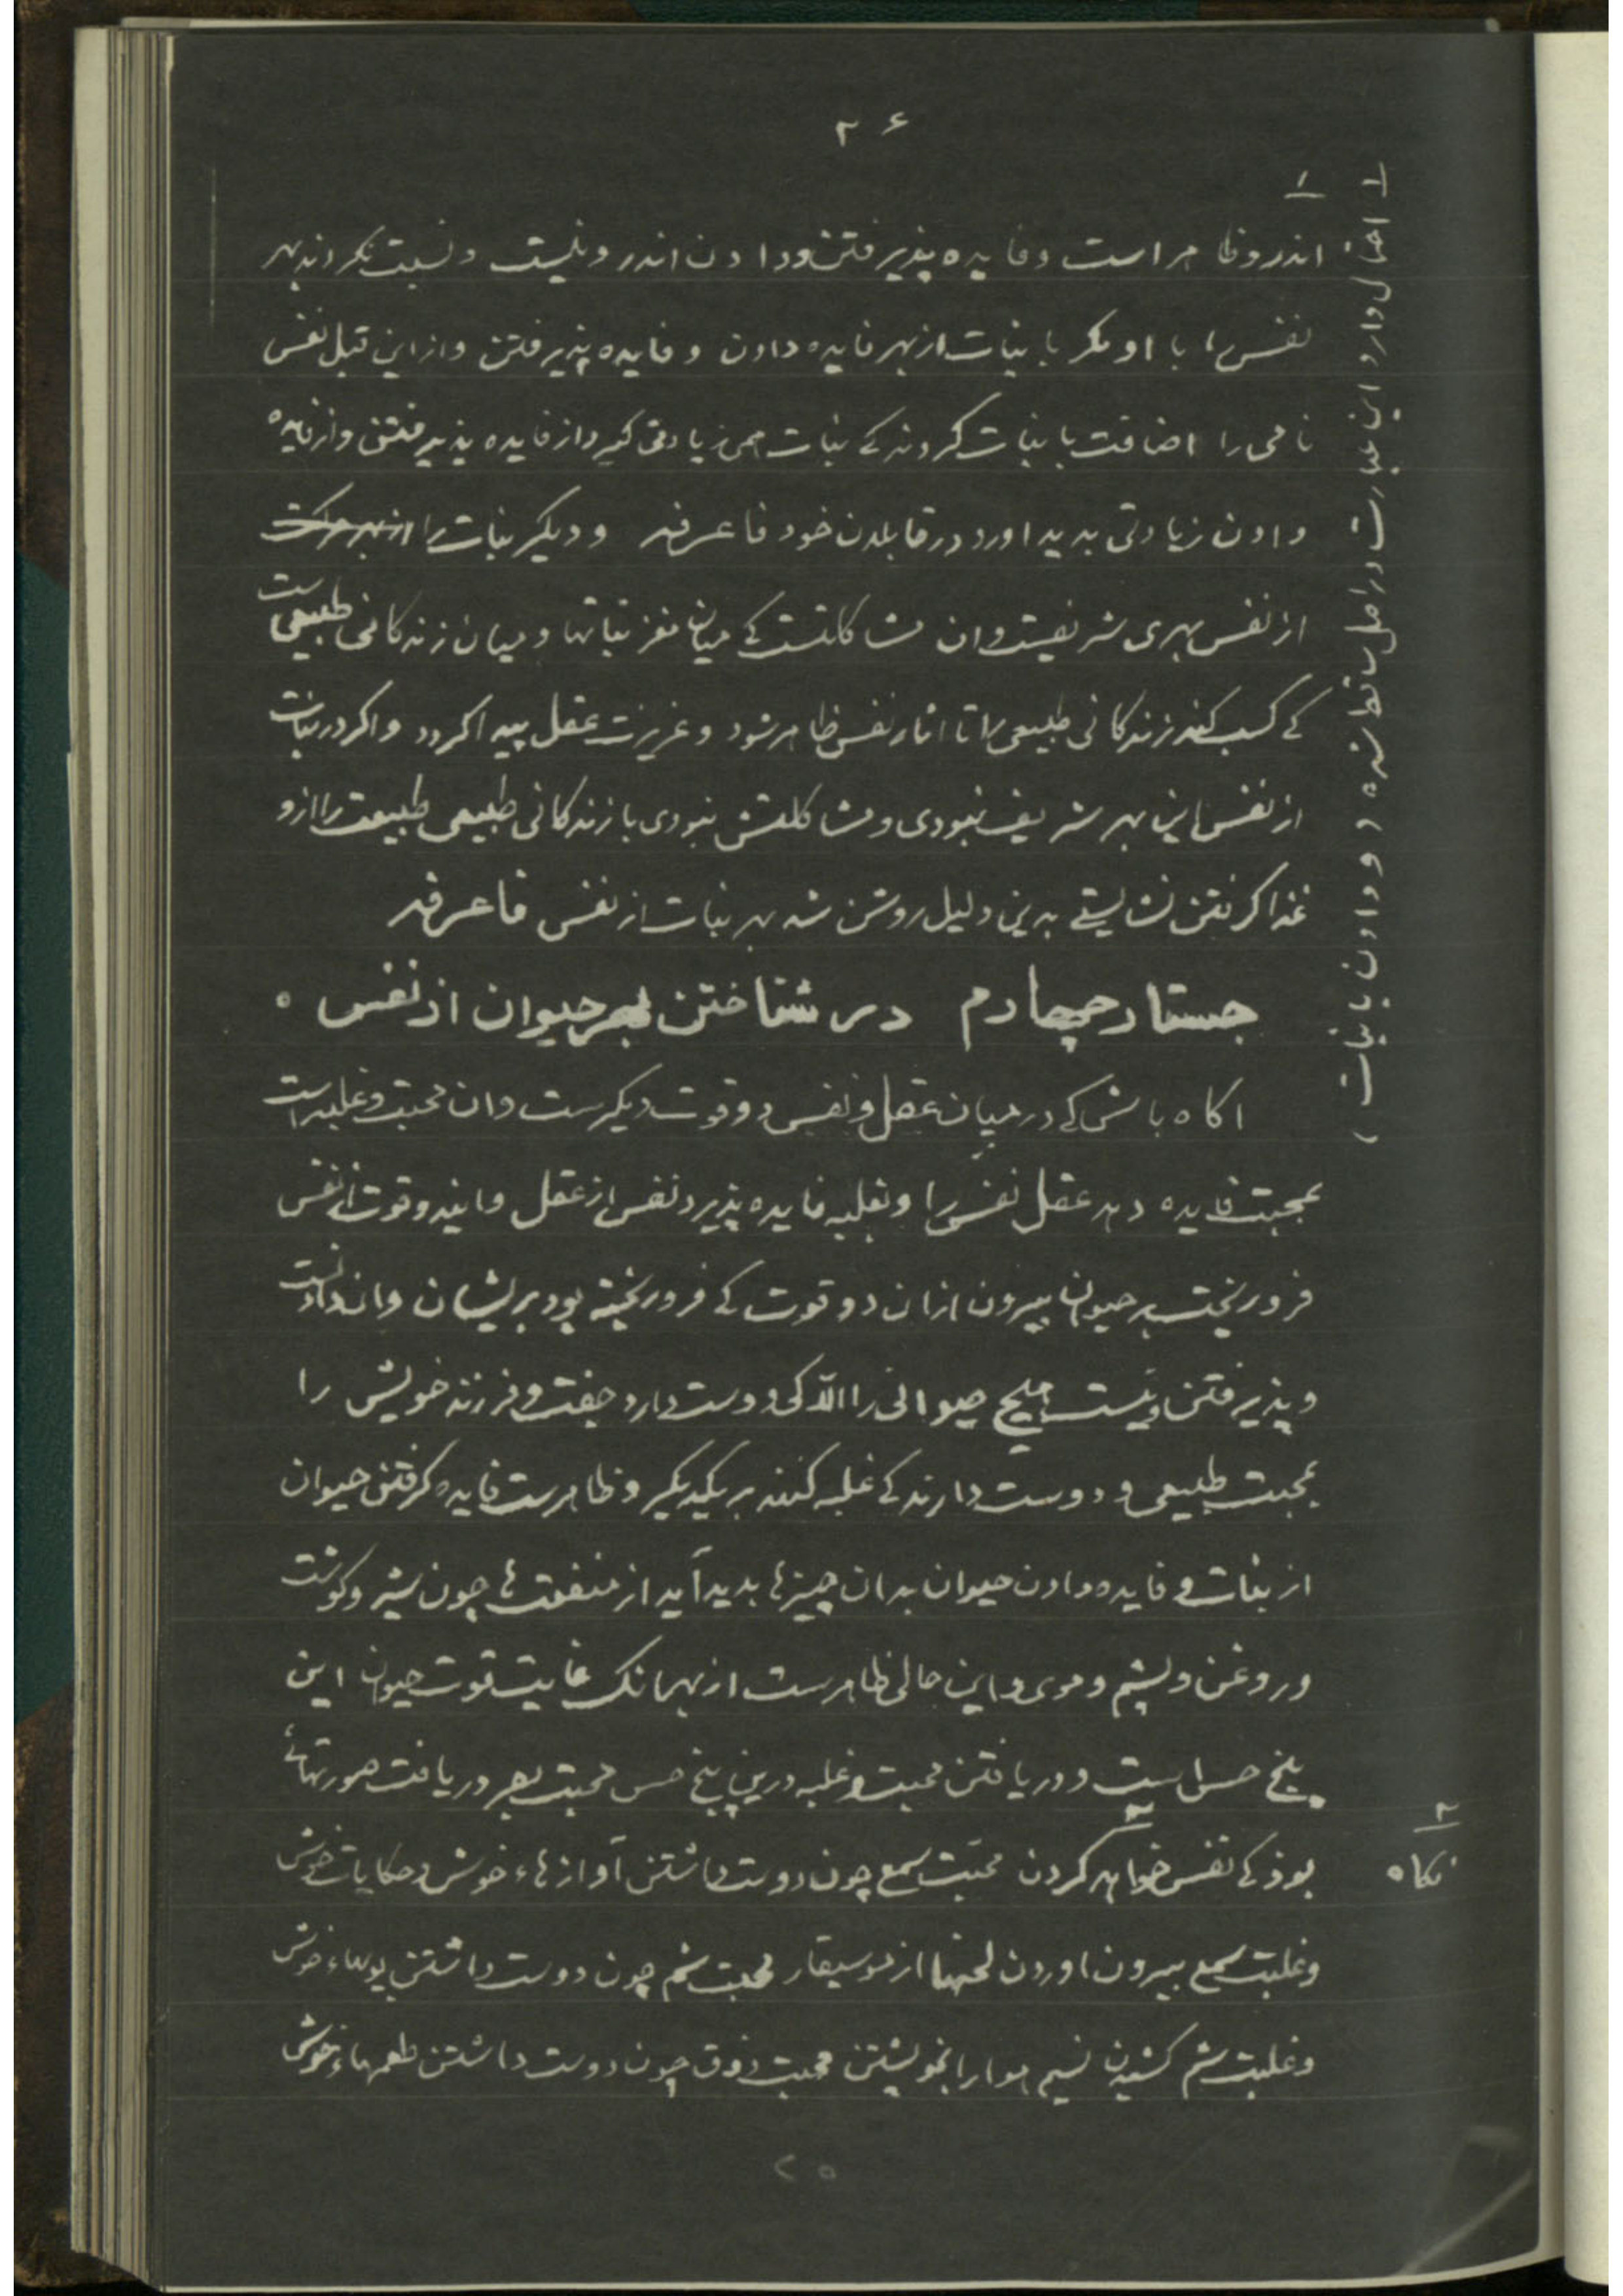 ۲۶
اندرو ظاهر است و فایده پذیرفتن و دادن اندرو نیست و نسبت نکردند بهر
نفس را با او مکر با نبات از بهر فایده دادن و فایده پذیرفتن و از این قبل نفس
نامی را اضافت با نبات کردند کے نبات همی زیادتی کیرد از فایده پذیرفتن و از فایده
دادن زیادتی بدید اورد در قابلدن خود فاعرفه و دیکر نبات را از بهر حرکت
از نفس بهری شریفست و ان مشاکلتست کے میان مغز نباتها و میان زندکانی طبیعی ست
کے کسب کند زندکانی طبیعی را تا اثار نفس ظاهر شود و غریزت عقل پیدا کردد و اکر در نبات
از نفس این بهر شریف نبودی و مشاکلتش نبودی با زندکانی طبیعی طبیعت را ازو
غذا کرفتن نشایستے بدین دلیل روشن شد بهر نبات از نفس فاعرفه
جستار چهارم در شناختن بهر حیوان از نفس ۰
اکاه باش کے در میان عقل و نفس دو قوت دیکرست و ان محبت و غلبه است
بمحبت فایده دهد عقل نفس را و بغلبه فایده پذیرد نفس از عقل و ایند و قوت از نفس
فروریخت بر حیوان بیرون از ان دو قوت کے فروریخته بود بریشان و ان دادنست
و پذیرفتن و نیست هیچ حیوانی را الا کی دوست دارد جفت و فرزند خویش را
بمحبت طبیعی و دوست دارند کے غلبه کنند بر یکدیکر و ظاهرست فایده کرفتن حیوان
از نبات و فایده دادن حیوان بدان چیزها بدید آید از منفعت ها چون شیر و کوشت
و روغن و پشم و موی و این حالی ظاهرست از بهر انک غایت قوت حیوان این
پنج حس است و دریافتن محبت و غلبه درین پنج حس محبت بصر دریافت صورتهائے
بوذ کے نفس خواهد کردن ۲ محبّت سمع چون دوست داشتن آوازهاء خوش و حکایات خوش
و غلبت سمع بیرون اوردن لحنها از موسیقار محبت شم چون دوست داشتن بویهاء خوش
و غلبت شم کشیدن نسیم هوا را بخویشتن محبت ذوق چون دوست داشتن طعمهاء خوش
۱
۱ احتمال دارد این عبارت در اصل ساقط شده (و دادن با نبات)
۲
نکاه
۲۵